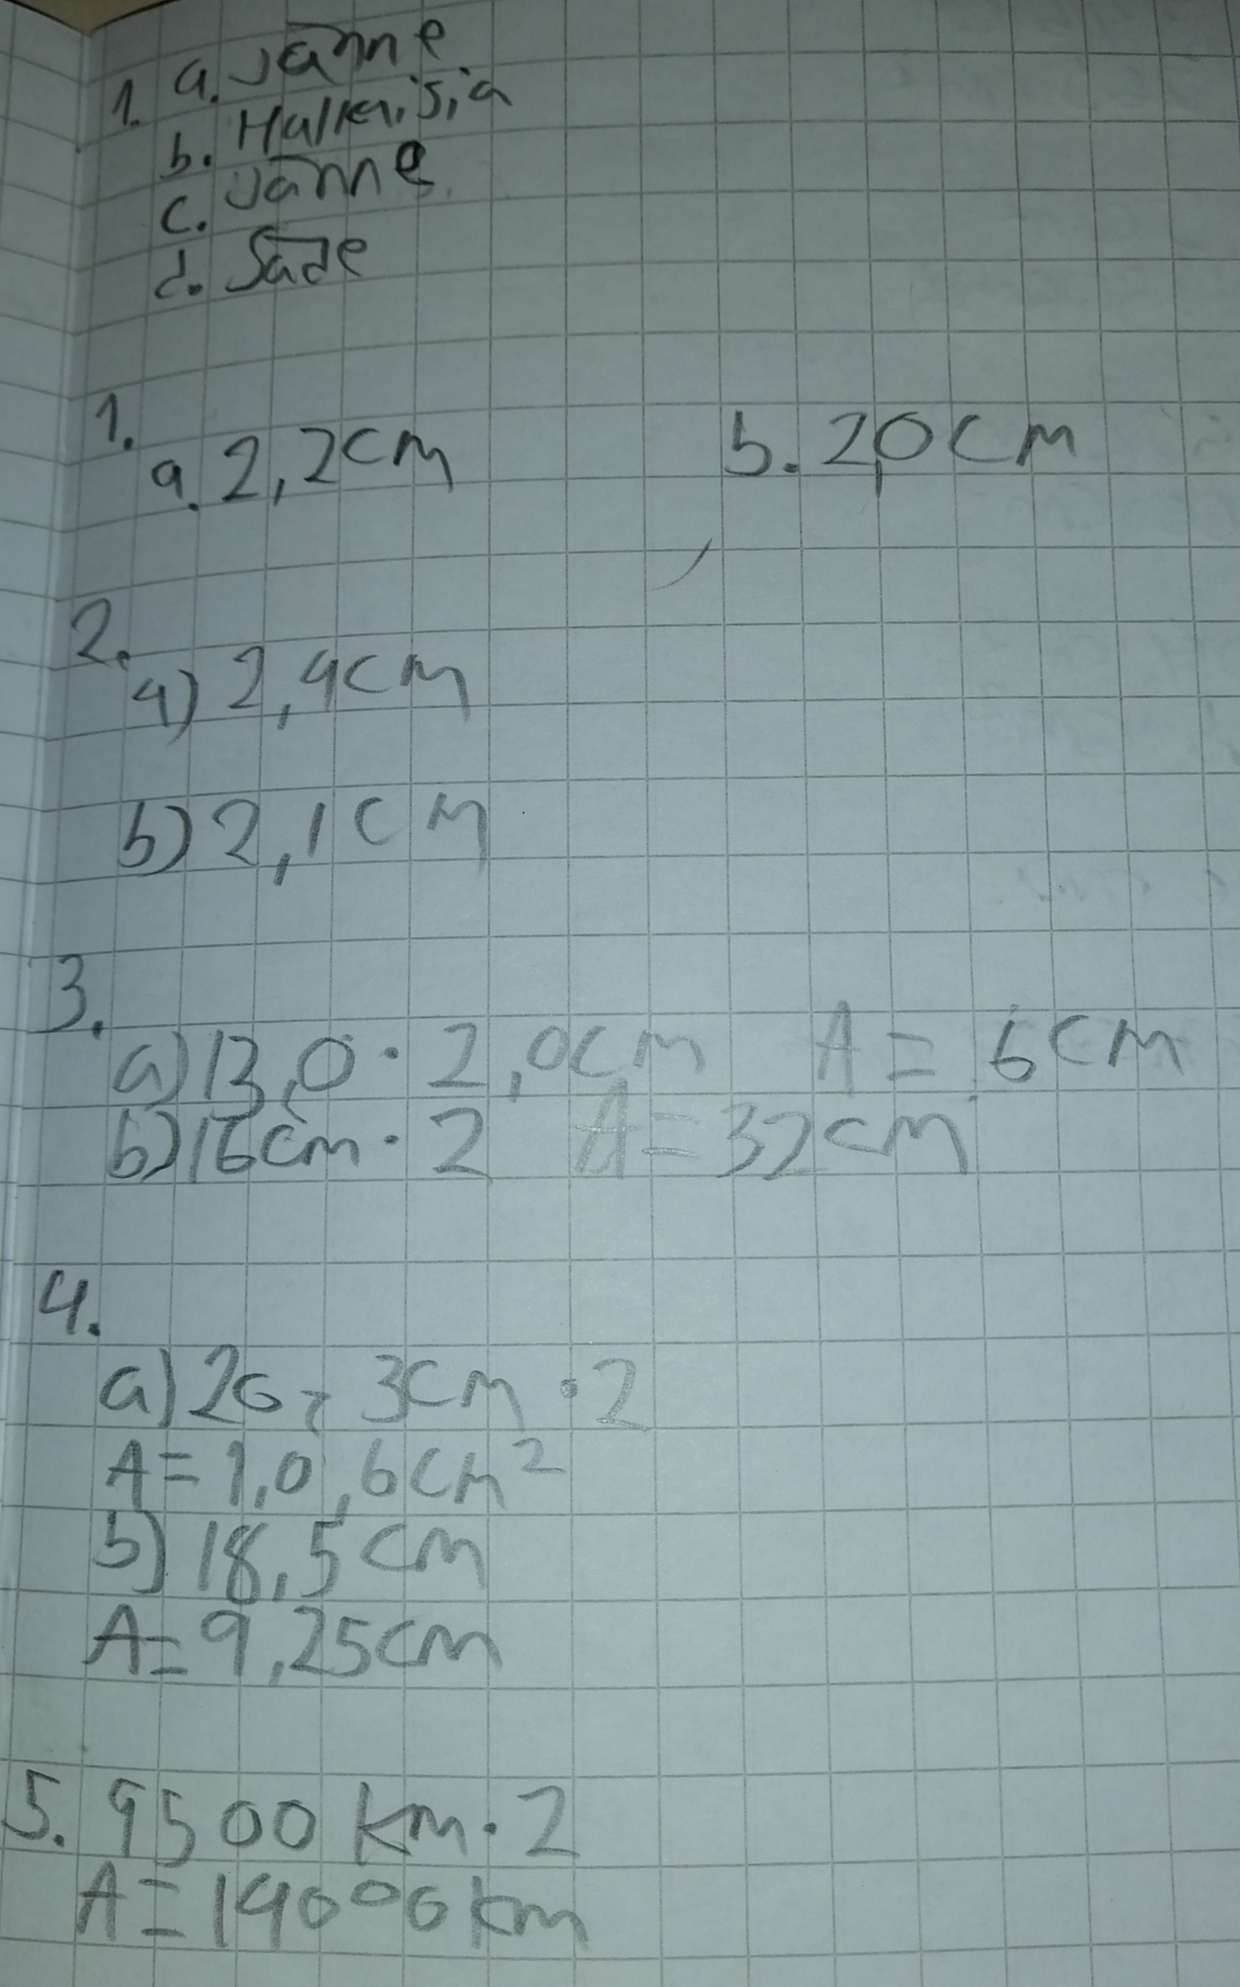 1. a. Jänne
b. Halkaisia
c. Jänne
d. Säde
1.
a. 2,2cm b. 2,0cm
2.
a) 2,9cm
b) 2,1cm
3.
a) 13,0 · 2,0cm A = 6cm
b) 16cm · 2 A = 32cm
4.
3cm · 2
A = 1,0,6cm²
b) 18,5cm
A = 9,25cm
5. 9500 km · 2
A = 19000km